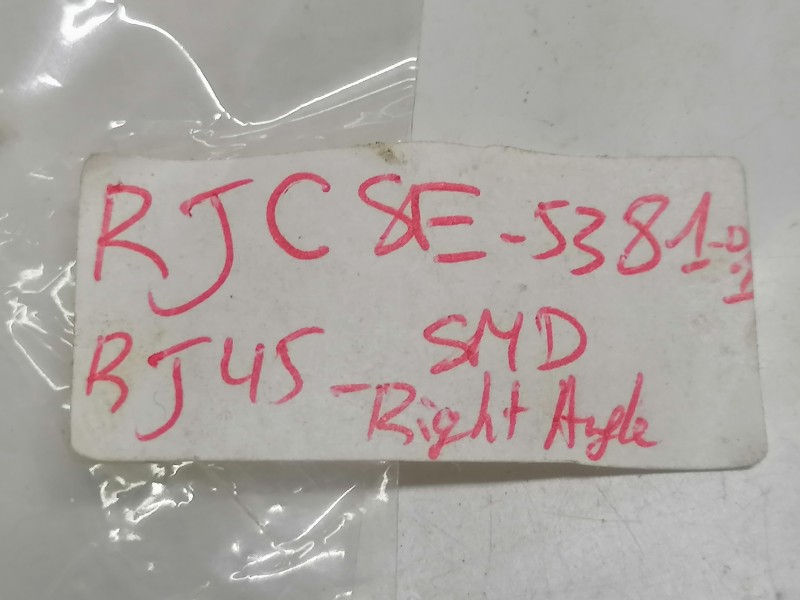 RJC8E-5381-01
RJ45 SMD
- Right Angle